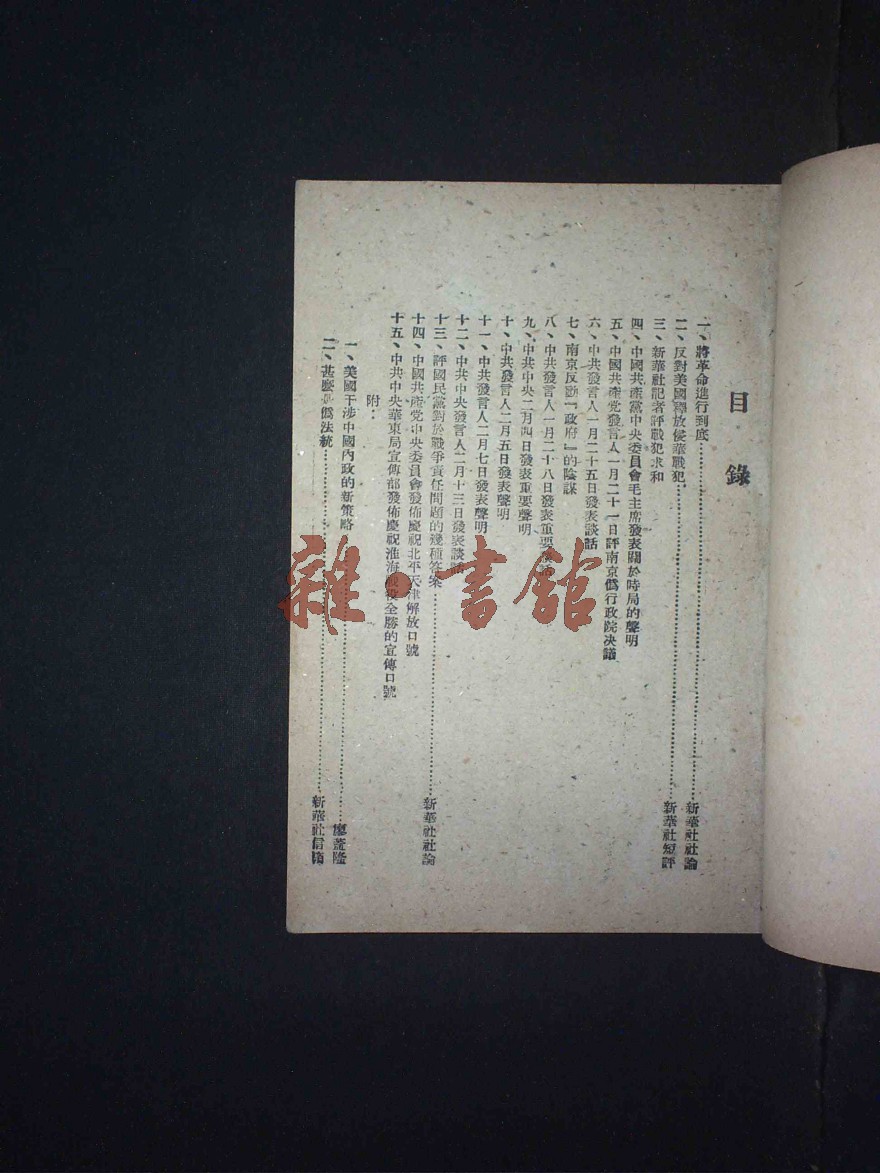 目錄
一、將革命進行到底……新華社社論
二、反對美國釋放侵華戰犯……新華社短評
三、新華社記者評戰犯求和
四、中國共產黨中央委員會毛主席發表關於時局的聲明
五、中國共產党發言人一月二十一日評南京僞行政院决議
六、中共發言人一月二十五日發表談話
七、南京反動『政府』的陰謀
八、中共發言人一月二十八日發表重要
九、中共中央二月四日發表重要聲明
十、中共發言人二月五日發表聲明
十一、中共發言人二月七日發表聲明
十二、中共中央發言人二月十三日發表談話
十三、評國民黨對於戰爭責任問題的幾種答案……新華社社論
十四、中國共產党中央委員會發佈慶祝北平天津解放口號
十五、中共中央華東局宣傳部發佈慶祝淮海戰役全勝的宣傳口號
附：
一、美國干涉中國內政的新策略……廖蓋隆
二、甚麼是僞法統……新華社信箱
雜·書館